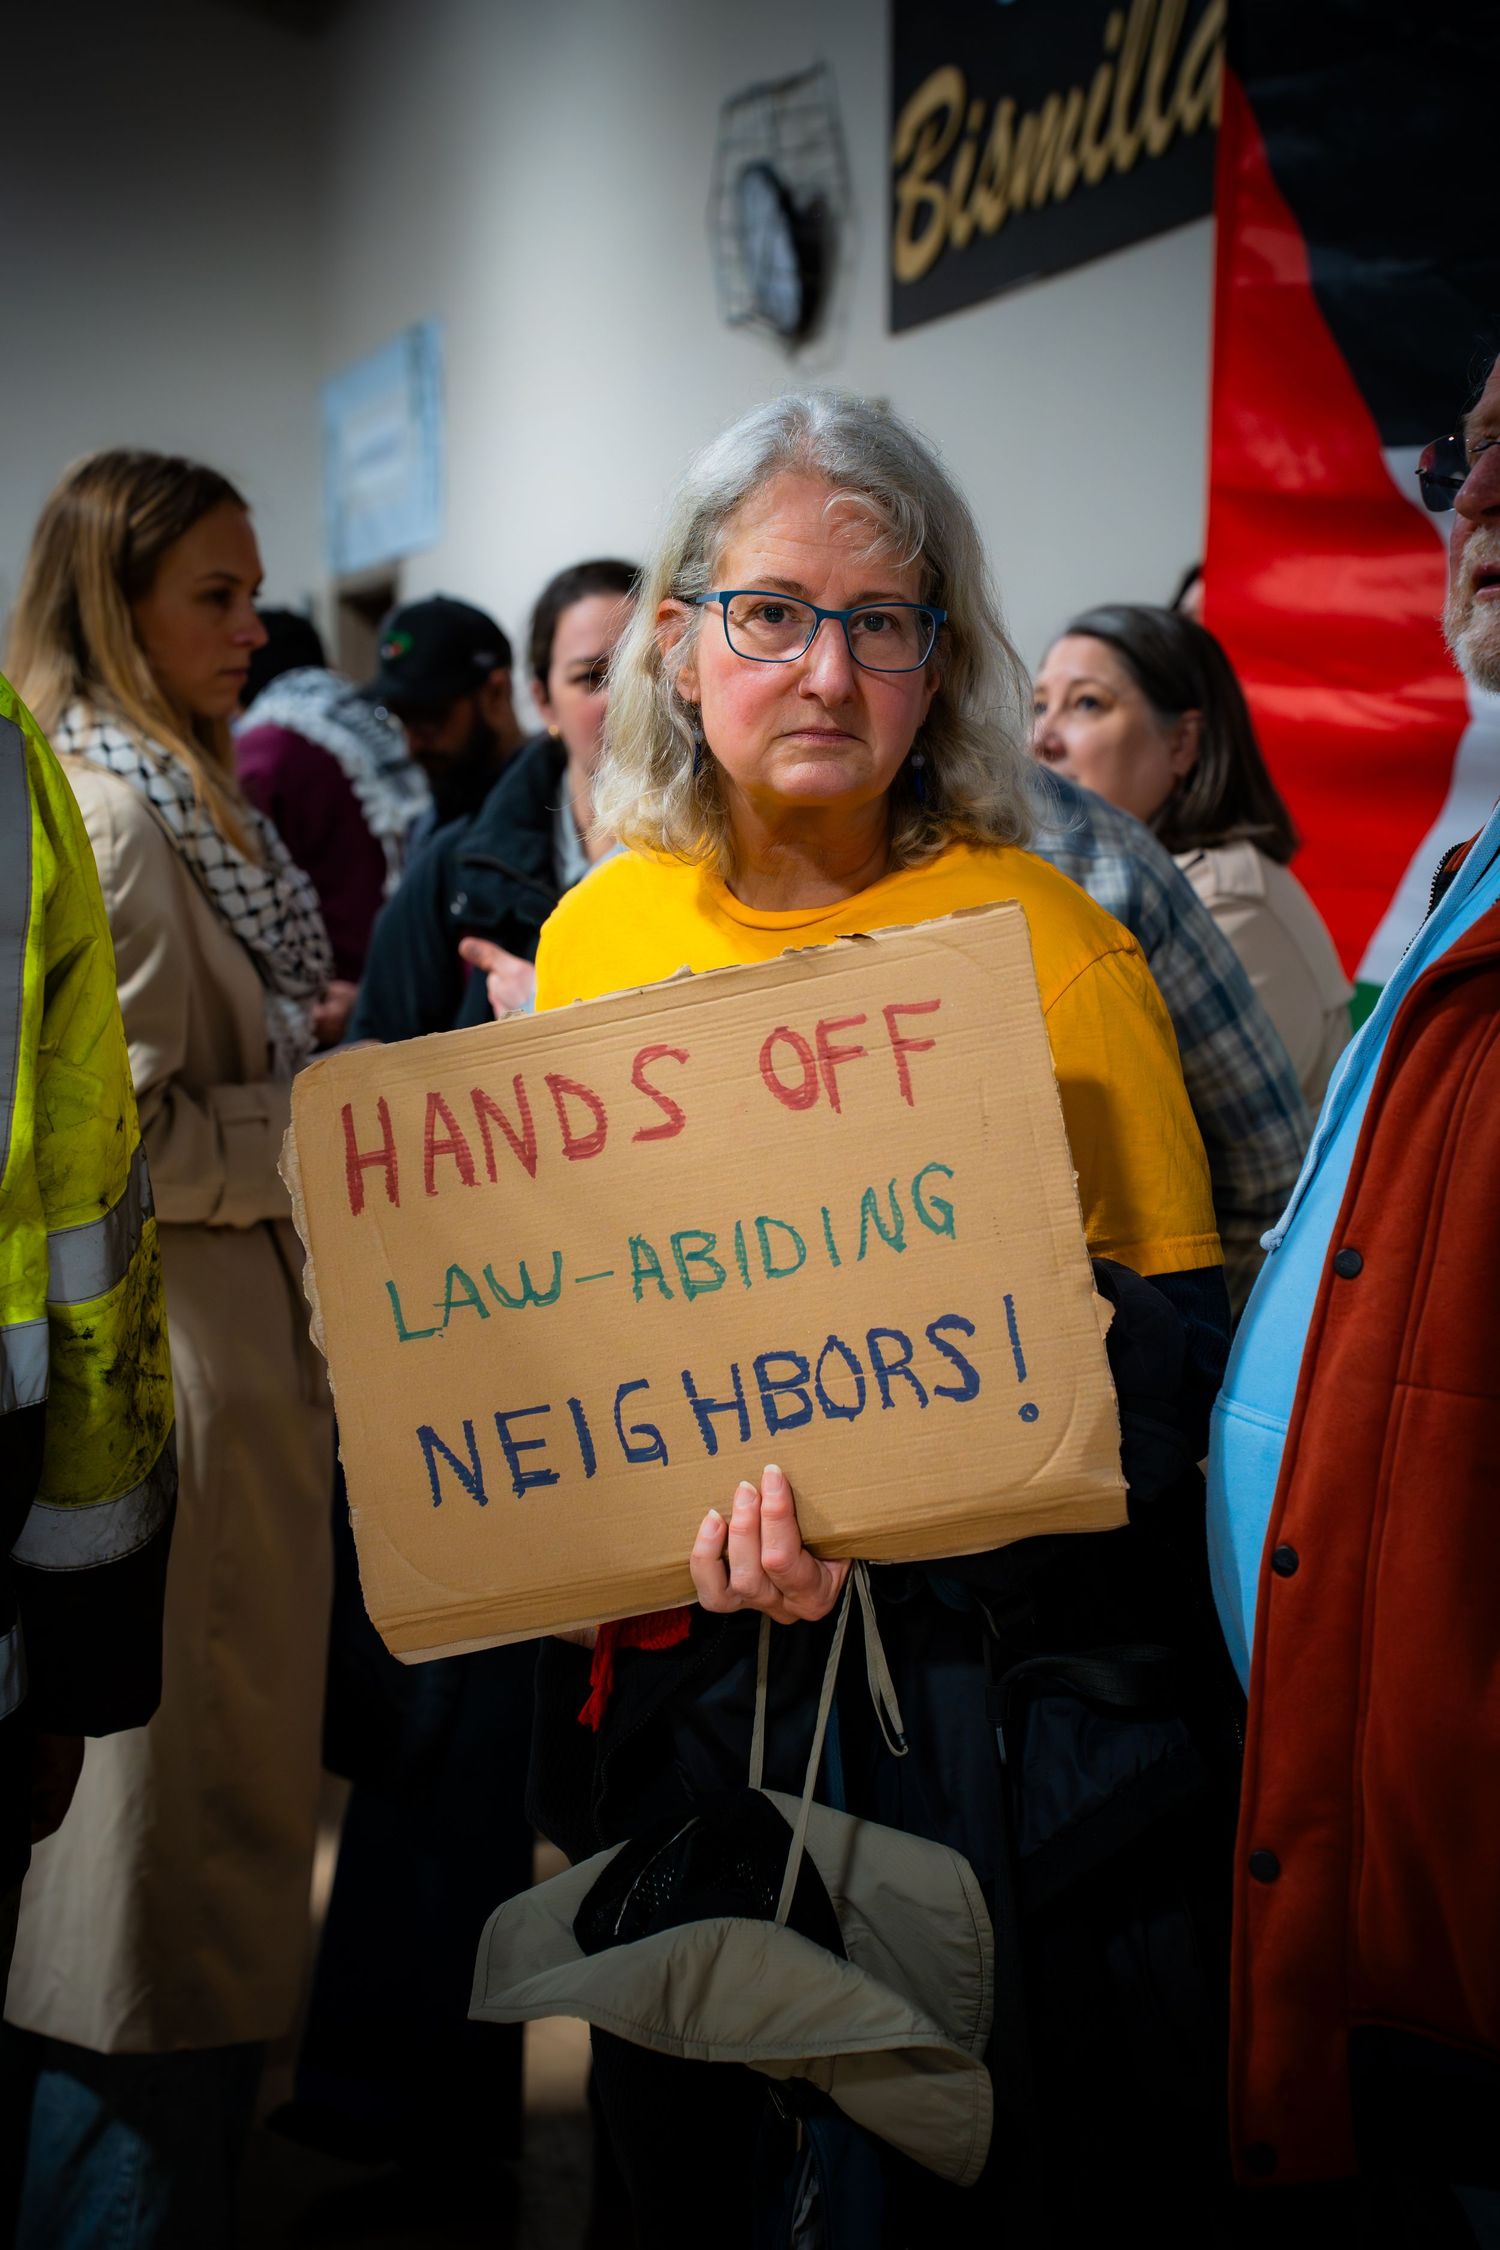 Bismilla
HANDS OFF
LAW-ABIDING
NEIGHBORS!